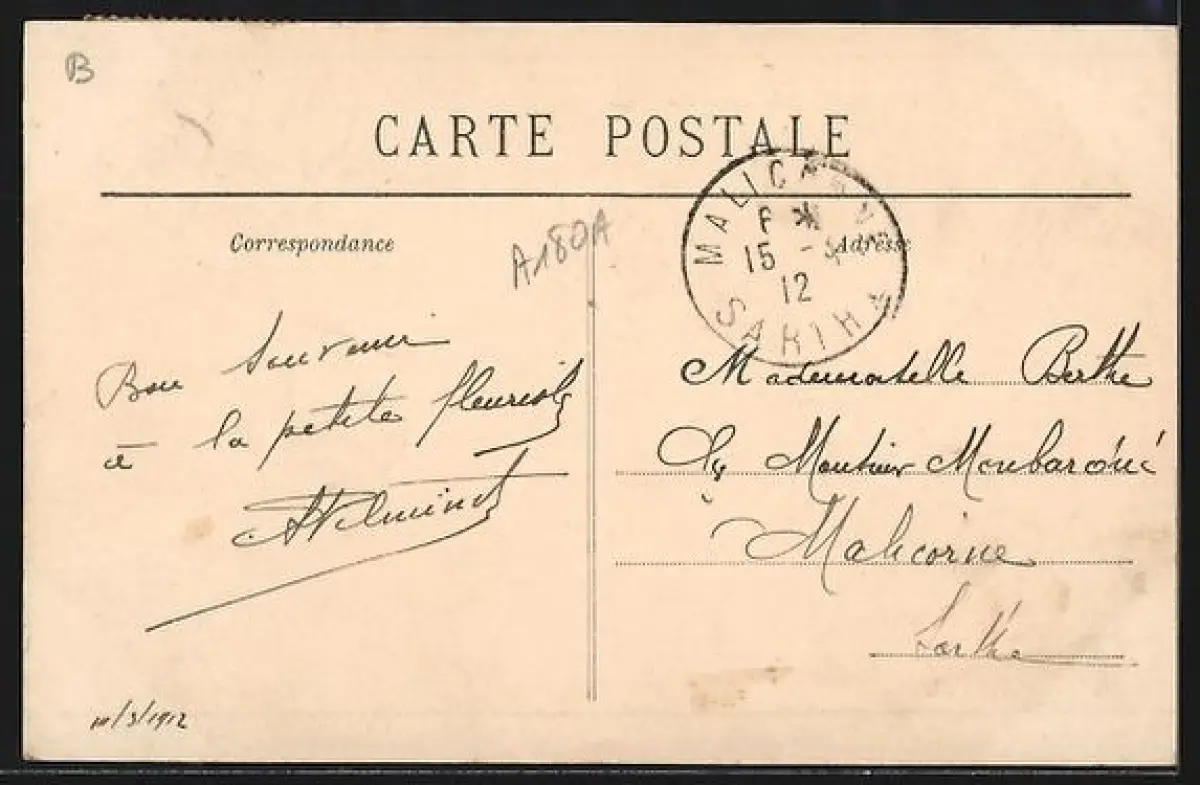 B
CARTE POSTALE
Correspondance
Adresse
A180A
MALICORNE
15 - 3
12
SARTHE
Bon souvenir
à la petite fleuriste
Mademoiselle Berthe
Moutier
Malicorne
Sarthe
/3/1912